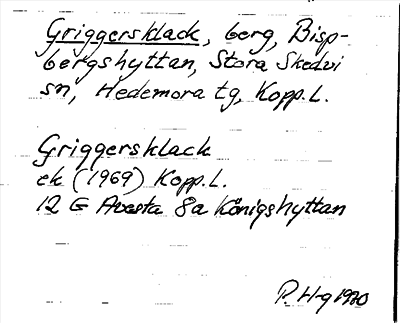 Griggersklack, berg, Bisp-
bergshyttan, Stora Skedvi
sn, Hedemora tg, Kopp.L.
Griggersklack
ek (1969) Kopp.L.
12 G Avesta 8a Königshyttan
P. H-g 1970